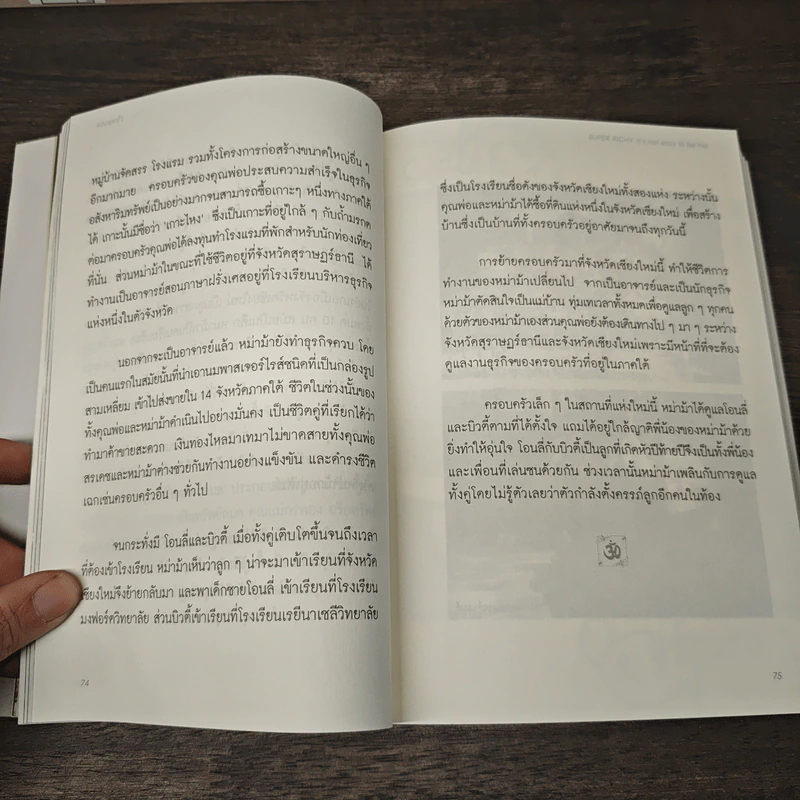 หมู่บ้านจัดสรร โรงแรม รวมทั้งโครงการก่อสร้างขนาดใหญ่อื่น ๆ
อีกมากมาย ครอบครัวของคุณพ่อประสบความสำเร็จในธุรกิจ
อสังหาริมทรัพย์เป็นอย่างมากจนสามารถซื้อเกาะๆ หนึ่งทางภาคใต้
ได้ เกาะนั้นมีชื่อว่า 'เกาะไหง' ซึ่งเป็นเกาะที่อยู่ใกล้ ๆ กับถ้ำมรกต
ต่อมาครอบครัวคุณพ่อได้ลงทุนทำโรงแรมที่พักสำหรับนักท่องเที่ยว
ที่นั่น ส่วนหม่าม้าในขณะที่ใช้ชีวิตอยู่ที่จังหวัดสุราษฎร์ธานี ได้
ทำงานเป็นอาจารย์สอนภาษาฝรั่งเศสอยู่ที่โรงเรียนบริหารธุรกิจ
แห่งหนึ่งในตัวจังหวัด
นอกจากจะเป็นอาจารย์แล้ว หม่าม้ายังทำธุรกิจควบ โดย
เป็นคนแรกในสมัยนั้นที่นำเอานมพาสเจอร์ไรส์ชนิดที่เป็นกล่องรูป
สามเหลี่ยม เข้าไปส่งขายใน 14 จังหวัดภาคใต้ ชีวิตในช่วงนั้นของ
ทั้งคุณพ่อและหม่าม้าดำเนินไปอย่างมั่นคง เป็นชีวิตคู่ที่เรียกได้ว่า
ทำมาค้าขายสะดวก เงินทองไหลมาเทมาไม่ขาดสายทั้งคุณพ่อ
สรเดชและหม่าม้าต่างช่วยกันทำงานอย่างแข็งขัน และดำรงชีวิต
เฉกเช่นครอบครัวอื่น ๆ ทั่วไป
จนกระทั่งมี โอนลี่และบิวตี้ เมื่อทั้งคู่เติบโตขึ้นจนถึงเวลา
ที่ต้องเข้าโรงเรียน หม่าม้าเห็นว่าลูก ๆ น่าจะมาเข้าเรียนที่จังหวัด
เชียงใหม่จึงย้ายกลับมา และพาเด็กชายโอนลี่ เข้าเรียนที่โรงเรียน
มงฟอร์ตวิทยาลัย ส่วนบิวตี้เข้าเรียนที่โรงเรียนเรยีนาเชลีวิทยาลัย
74
ซึ่งเป็นโรงเรียนชื่อดังของจังหวัดเชียงใหม่ทั้งสองแห่ง ระหว่างนั้น
คุณพ่อและหม่าม้าได้ซื้อที่ดินแห่งหนึ่งในจังหวัดเชียงใหม่ เพื่อสร้าง
บ้านซึ่งเป็นบ้านที่ทั้งครอบครัวอยู่อาศัยมาจนถึงทุกวันนี้
การย้ายครอบครัวมาที่จังหวัดเชียงใหม่นี้ ทำให้ชีวิตการ
ทำงานของหม่าม้าเปลี่ยนไป จากเป็นอาจารย์และเป็นนักธุรกิจ
หม่าม้าตัดสินใจเป็นแม่บ้าน ทุ่มเทเวลาทั้งหมดเพื่อดูแลลูก ๆ ทุกคน
ด้วยตัวของหม่าม้าเองส่วนคุณพ่อยังต้องเดินทางไป ๆ มา ๆ ระหว่าง
จังหวัดสุราษฎร์ธานีและจังหวัดเชียงใหม่เพราะมีหน้าที่ที่จะต้อง
ดูแลงานธุรกิจของครอบครัวที่อยู่ในภาคใต้
ครอบครัวเล็ก ๆ ในสถานที่แห่งใหม่นี้ หม่าม้าได้ดูแลโอนลี่
และบิวตี้ตามที่ได้ตั้งใจ แถมได้อยู่ใกล้ญาติพี่น้องของหม่าม้าด้วย
ยิ่งทำให้อุ่นใจ โอนลี่กับบิวตี้เป็นลูกที่เกิดหัวปีท้ายปีจึงเป็นทั้งพี่น้อง
และเพื่อนที่เล่นซนด้วยกัน ช่วงเวลานั้นหม่าม้าเพลินกับการดูแล
ทั้งคู่โดยไม่รู้ตัวเลยว่าตัวกำลังตั้งครรภ์ลูกอีกคนในท้อง
ॐ
75